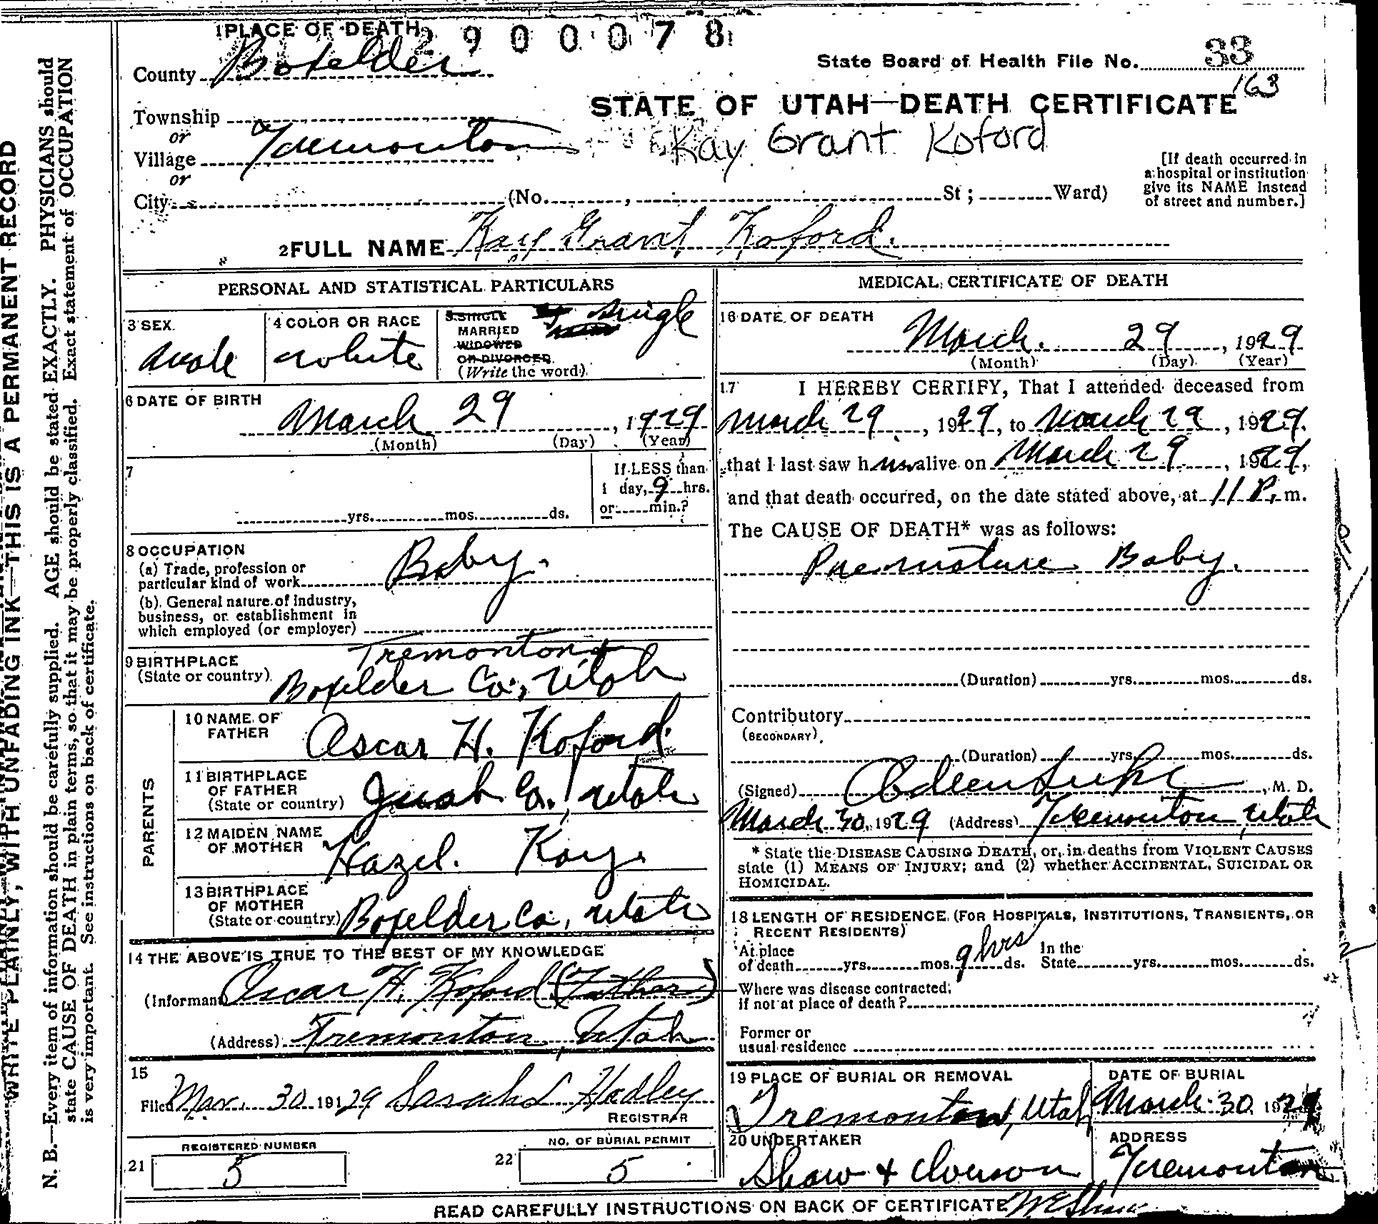 1 PLACE OF DEATH
2900078
County Boxelder
State Board of Health File No. 33
163
STATE OF UTAH—DEATH CERTIFICATE
Township
or
Village Tremonton
Kay Grant Koford
or
City (No. , St ; Ward)
[If death occurred in
a hospital or institution
give its NAME instead
of street and number.]
2 FULL NAME Kay Grant Koford.
PERSONAL AND STATISTICAL PARTICULARS
3 SEX
male
4 COLOR OR RACE
white
5 SINGLE
MARRIED
WIDOWED
OR DIVORCED
(Write the word)
Single
6 DATE OF BIRTH
March 29, 1929
(Month) (Day) (Year)
7
yrs. mos. ds.
If LESS than
1 day, 9 hrs.
or min.?
8 OCCUPATION
(a) Trade, profession or
particular kind of work
Baby.
(b) General nature of industry,
business, or establishment in
which employed (or employer)
9 BIRTHPLACE
(State or country)
Tremonton
Boxelder Co., Utah
PARENTS
10 NAME OF
FATHER
Oscar H. Koford.
11 BIRTHPLACE
OF FATHER
(State or country)
Juab Co., Utah
12 MAIDEN NAME
OF MOTHER
Hazel. Kay.
13 BIRTHPLACE
OF MOTHER
(State or country)
Boxelder Co, Utah
14 THE ABOVE IS TRUE TO THE BEST OF MY KNOWLEDGE
(Informant Oscar H. Koford (Father)
(Address) Tremonton, Utah
15
Filed Mar. 30 191 29 Sarah L Hadley
REGISTRAR
REGISTERED NUMBER
21 5
NO. OF BURIAL PERMIT
22 5
MEDICAL CERTIFICATE OF DEATH
16 DATE OF DEATH
March. 29, 1929
(Month) (Day) (Year)
17 I HEREBY CERTIFY, That I attended deceased from
March 29, 1929, to March 29, 1929.
that I last saw him alive on March 29, 1929,
and that death occurred, on the date stated above, at 11 P. m.
The CAUSE OF DEATH* was as follows:
Premature Baby.
(Duration) yrs. mos. ds.
Contributory
(SECONDARY)
(Duration) yrs. mos. ds.
(Signed) , M. D.
March 30, 1929 (Address) Tremonton, Utah
* State the DISEASE CAUSING DEATH, or, in deaths from VIOLENT CAUSES
state (1) MEANS OF INJURY; and (2) whether ACCIDENTAL, SUICIDAL OR
HOMICIDAL.
18 LENGTH OF RESIDENCE (FOR HOSPITALS, INSTITUTIONS, TRANSIENTS, OR
RECENT RESIDENTS)
At place
of death yrs. mos. 9 hrs ds.
In the
State yrs. mos. ds.
Where was disease contracted,
if not at place of death?
Former or
usual residence
19 PLACE OF BURIAL OR REMOVAL
Tremonton, Utah
DATE OF BURIAL
March 30 1929
20 UNDERTAKER
Shaw & Iverson
ADDRESS
Tremonton
READ CAREFULLY INSTRUCTIONS ON BACK OF CERTIFICATE
WRITE PLAINLY, WITH UNFADING INK—THIS IS A PERMANENT RECORD
N. B.—Every item of information should be carefully supplied. AGE should be stated EXACTLY. PHYSICIANS should
state CAUSE OF DEATH in plain terms, so that it may be properly classified. Exact statement of OCCUPATION
is very important. See instructions on back of certificate.